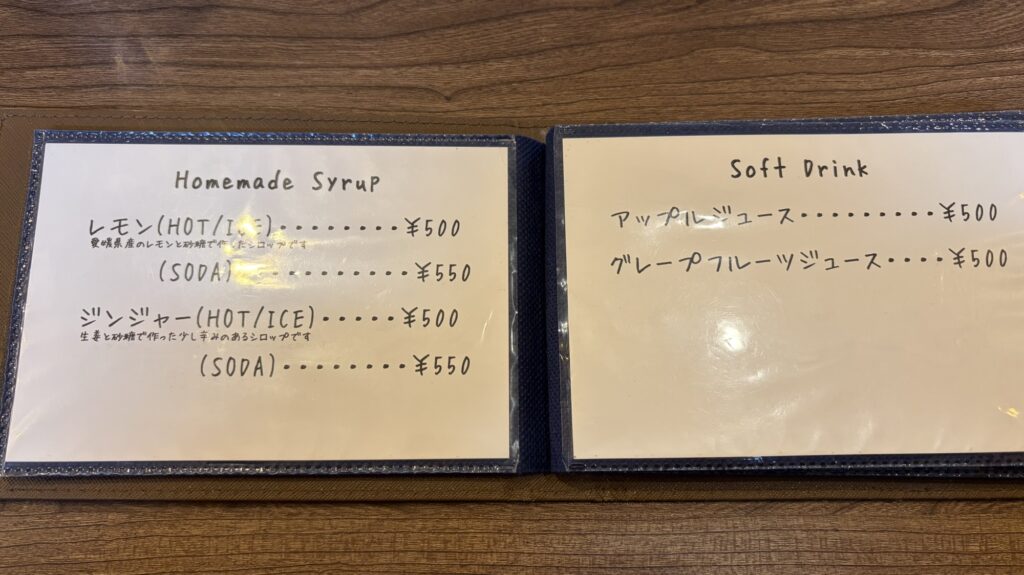 Homemade Syrup
レモン(HOT/ICE)・・・・・・・・¥500
愛媛県産のレモンと砂糖で作ったシロップです
(SODA)・・・・・・・・・・¥550
ジンジャー(HOT/ICE)・・・・・¥500
生姜と砂糖で作った少し辛みのあるシロップです
(SODA)・・・・・・・・¥550
Soft Drink
アップルジュース・・・・・・・・・¥500
グレープフルーツジュース・・・・¥500